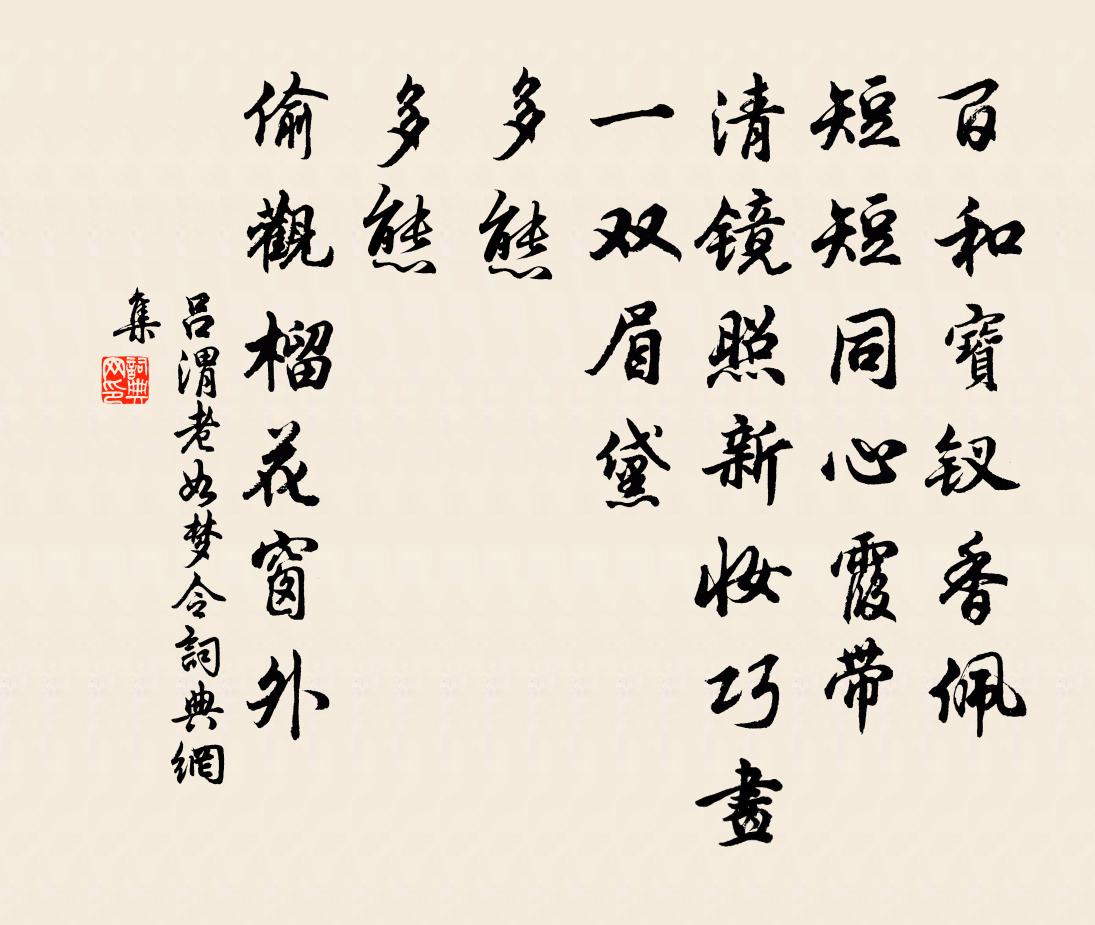 百和寶钗香佩
短短同心霞带
清镜照新妆巧畫
一双眉黛
多態
多態
偷觀榴花窗外
吕渭老如梦令詞典網
集
詞典网印